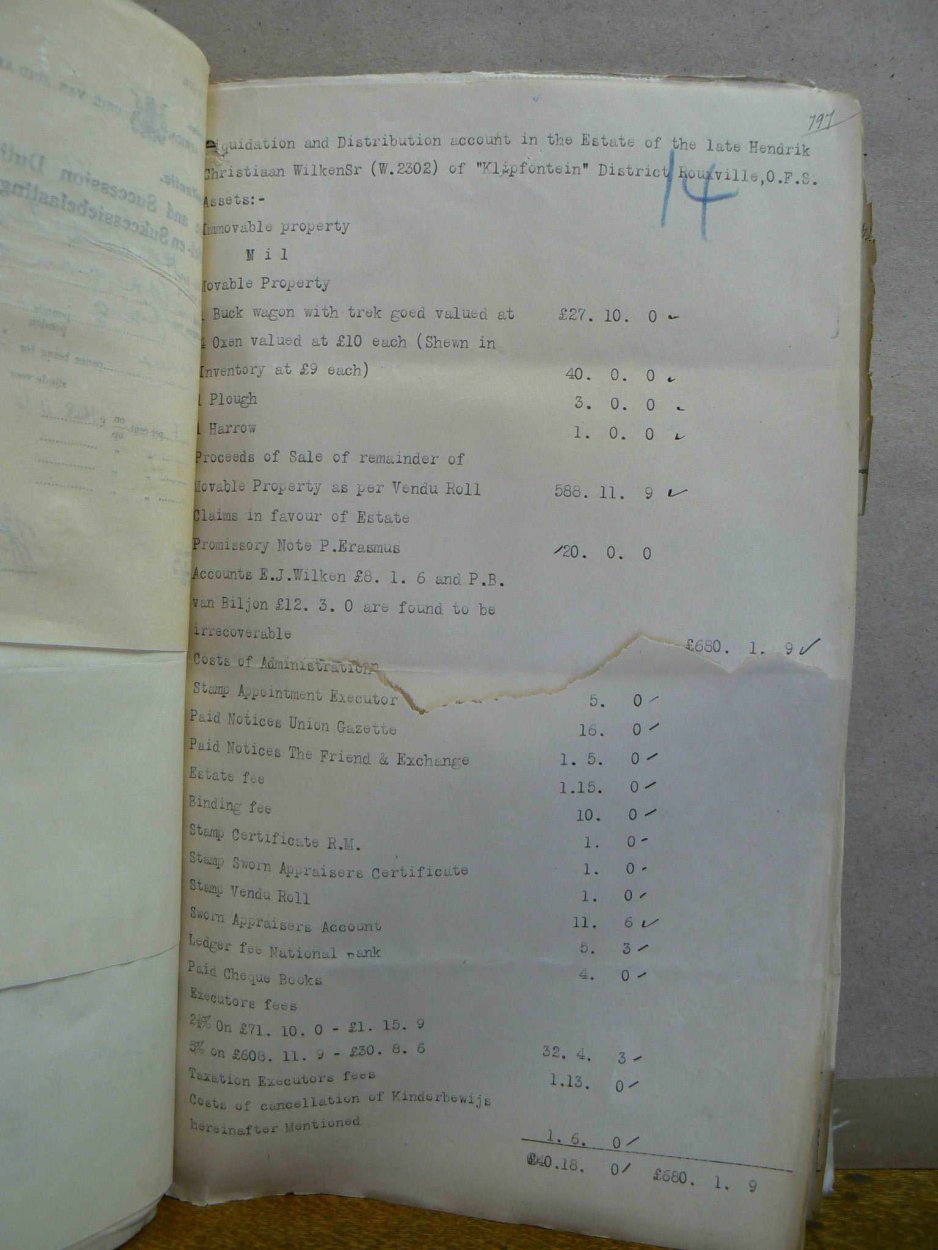 797
14
Liquidation and Distribution account in the Estate of the late Hendrik
Christiaan WilkenSr (W.2302) of "Klipfontein" District Rouxville,O.F.S.
Assets:-
Immovable property
N i l
Movable Property
1 Buck wagon with trek goed valued at £27. 10. 0
4 Oxen valued at £10 each (Shewn in
Inventory at £9 each) 40. 0. 0
1 Plough 3. 0. 0
1 Harrow 1. 0. 0
Proceeds of Sale of remainder of
Movable Property as per Vendu Roll 588. 11. 9
Claims in favour of Estate
Promissory Note P.Erasmus 20. 0. 0
Accounts E.J.Wilken £8. 1. 6 and P.B.
van Biljon £12. 3. 0 are found to be
irrecoverable £680. 1. 9
Costs of Administration
Stamp Appointment Executor 5. 0
Paid Notices Union Gazette 16. 0
Paid Notices The Friend & Exchange 1. 5. 0
Estate fee 1.15. 0
Binding fee 10. 0
Stamp Certificate R.M. 1. 0
Stamp Sworn Appraisers Certificate 1. 0
Stamp Vendu Roll 1. 0
Sworn Appraisers Account 11. 6
Ledger fee National Bank 5. 3
Paid Cheque Books 4. 0
Executors fees
2½% On £71. 10. 0 - £1. 15. 9
5% on £608. 11. 9 - £30. 8. 6 32. 4. 3
Taxation Executors fees 1.13. 0
Costs of cancellation of Kinderbewijs
hereinafter Mentioned 1. 6. 0
£40.18. 0 £680. 1. 9